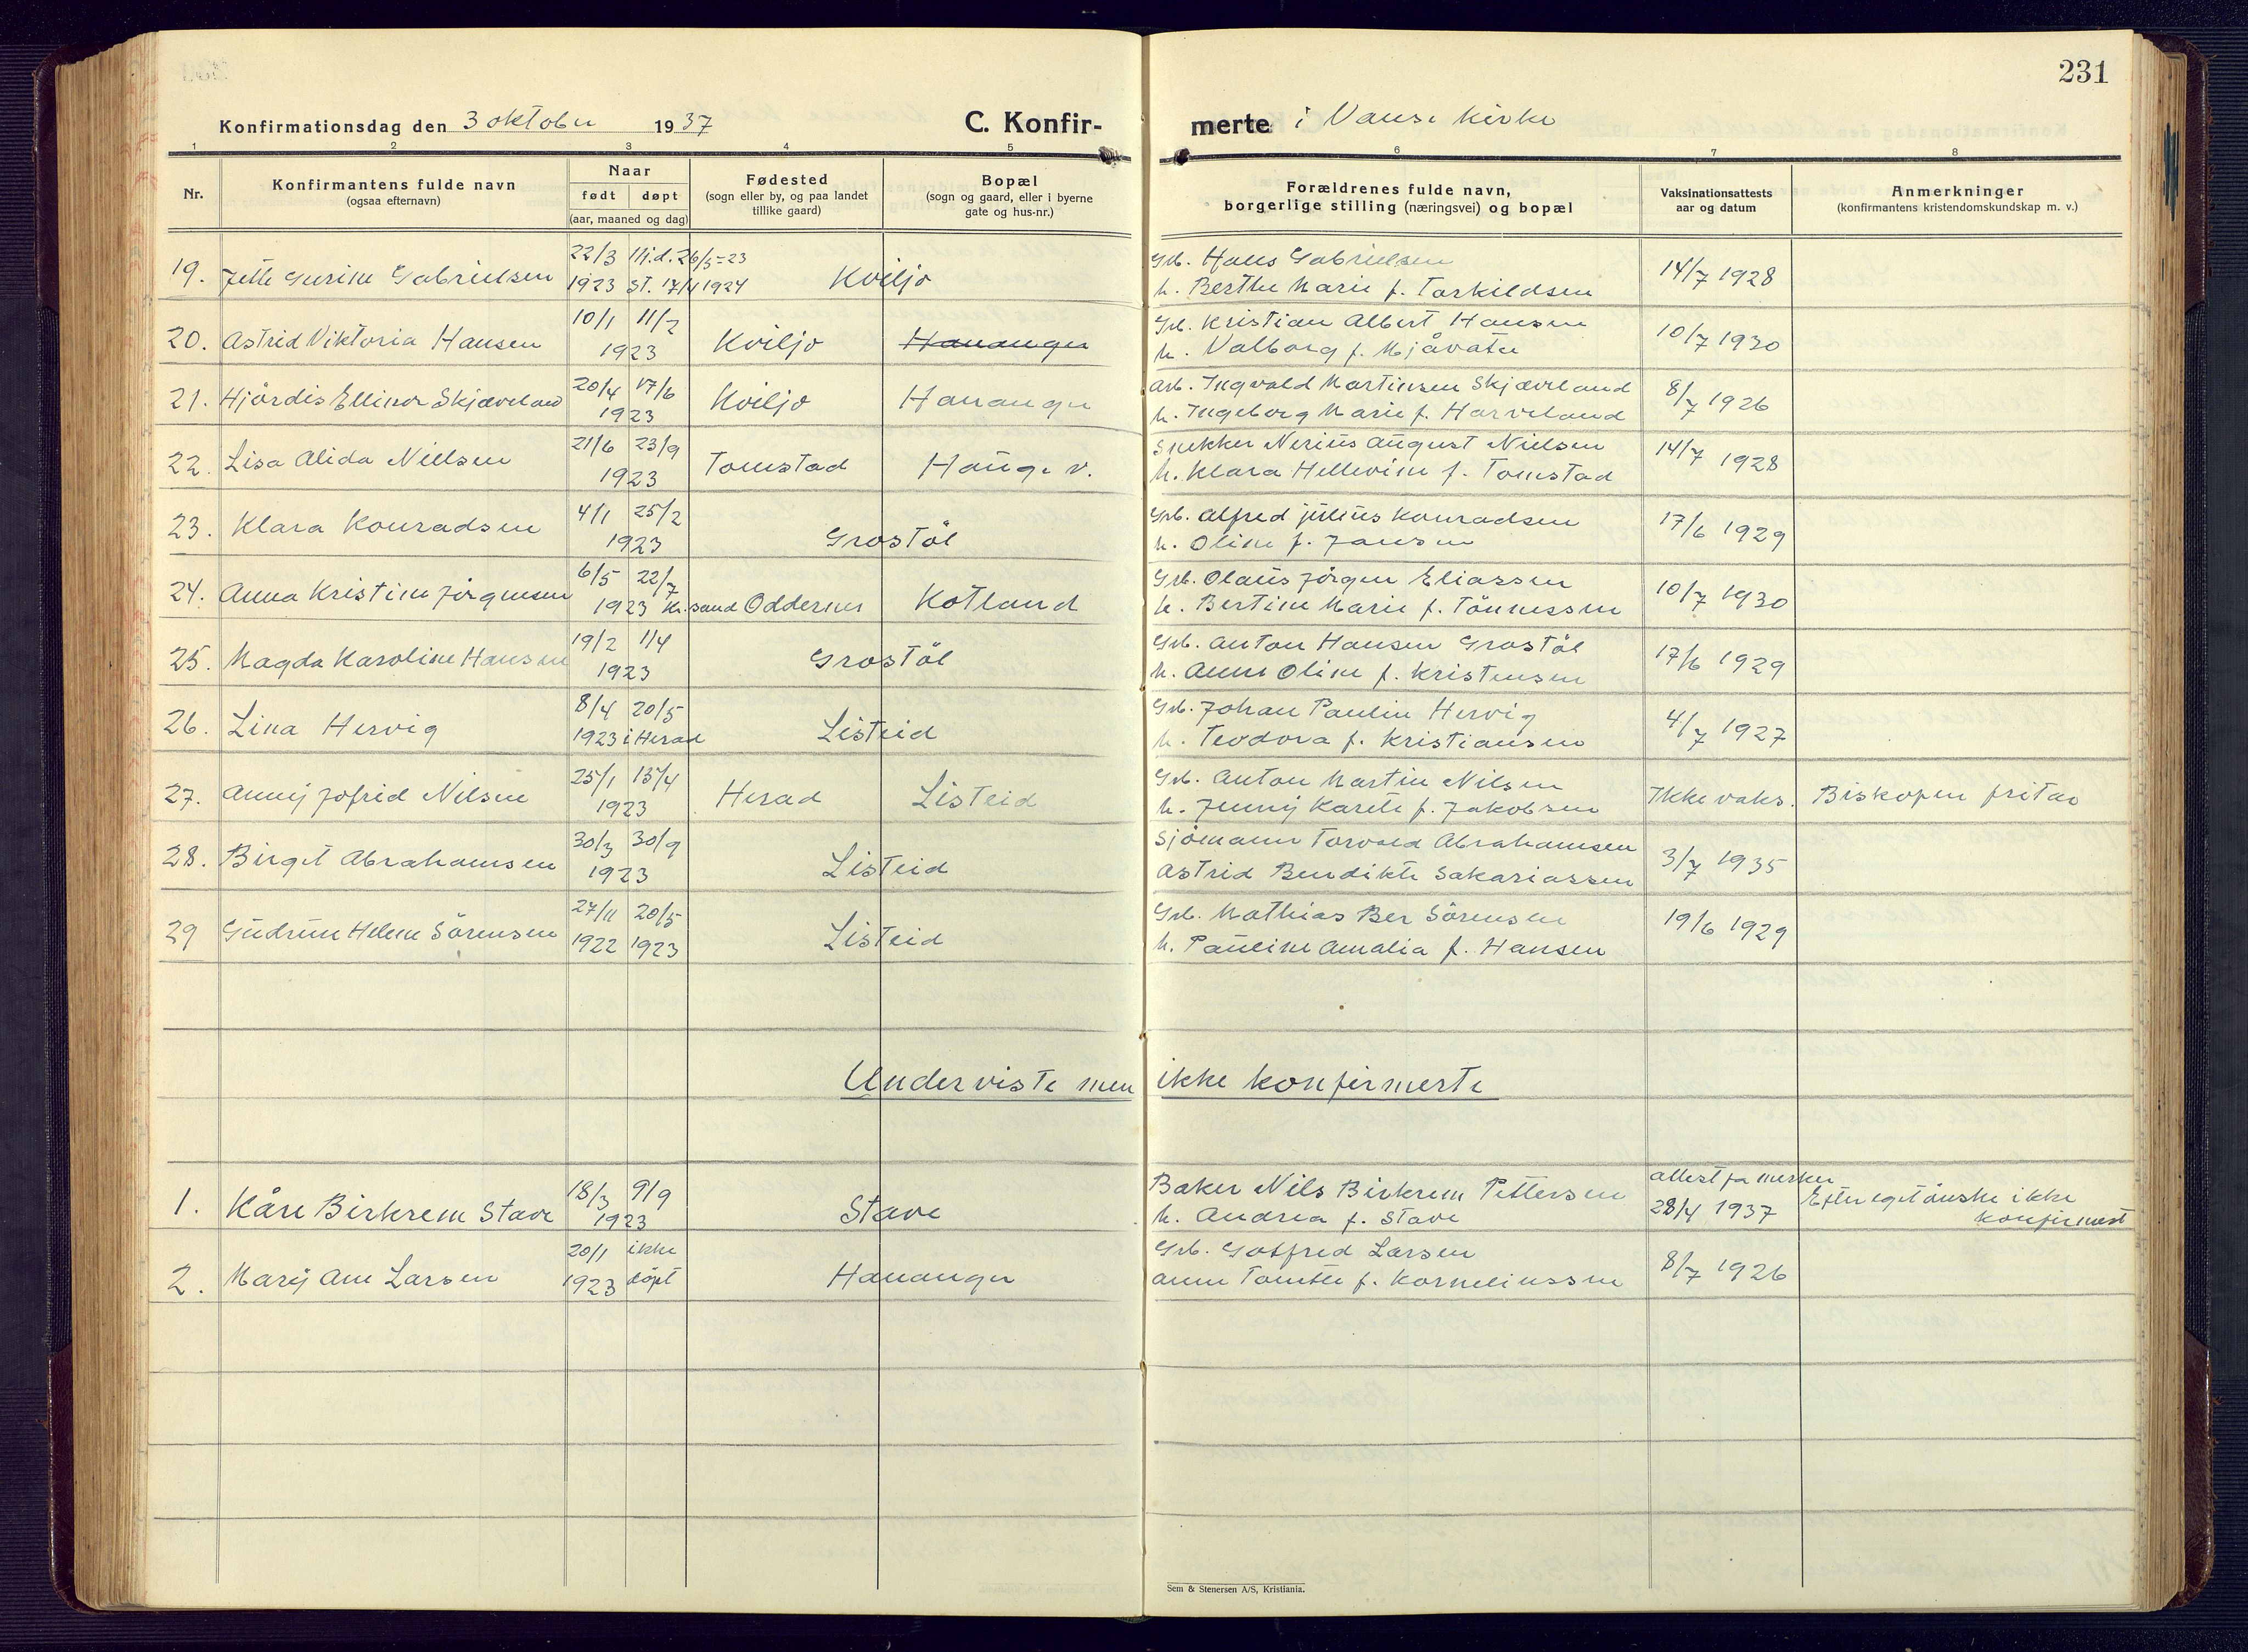 231
Konfirmationsdag den 3 oktober 1937 C. Konfir-
merte i Vanse kirke
1 2 3 4 5 6 7 8
Nr.
Konfirmantens fulde navn
(ogsaa efternavn)
Naar
født døpt
(aar, maaned og dag)
Fødested
(sogn eller by, og paa landet
tillike gaard)
Bopæl
(sogn og gaard, eller i byerne
gate og hus-nr.)
Forældrenes fulde navn,
borgerlige stilling (næringsvei) og bopæl
Vaksinationsattests
aar og datum
Anmerkninger
(konfirmantens kristendomskundskap m. v.)
19. Jette Gurine Gabrielsen 22/3 1923 M.d. 26/5-23 st. 17/4 1924 Kviljo
Grb. Hans Gabrielsen
h. Berthe Marie f. Torkildsen 14/7 1928
20. Astrid Viktoria Hansen 10/1 11/2 1923 Kviljo Hananger
Grb. Kristian Albert Hansen
h. Valborg f. Mjåvatn 10/7 1930
21. Hjördis Ellinor Skjæveland 20/4 17/6 1923 Kviljo Hananger
Arb. Ingvald Martinsen Skjæveland
h. Ingeborg Marie f. Harveland 8/7 1926
22. Lisa Alida Nielsen 21/6 23/9 1923 Tomstad Hauge v.
Snekker Nerius August Nielsen
h. Klara Hellevine f. Tomstad 14/7 1928
23. Klara Konradsen 4/1 25/2 1923 Grostöl
Grb. Alfred Julius Konradsen
h. Oline f. Jansen 17/6 1929
24. Anna Kristine Jörgensen 6/5 22/7 1923 Kr.sand Oddernes Kotland
Grb. Olaus Jörgen Eliassen
h. Bertine Marie f. Tönnessen 10/7 1930
25. Magda Karoline Hansen 19/2 1/4 1923 Grostöl
Grb. Anton Hansen Grostöl
h. Anne Oline f. Kristensen 17/6 1929
26. Lina Hervig 8/4 20/5 1923 i Herad Listeid
Grb. Johan Paulin Hervig
h. Teodora f. Kristiansen 4/7 1927
27. Anny Jofrid Nilsen 25/1 15/4 1923 Herad Listeid
Grb. Anton Martin Nilsen
h. Jenny Karete f. Jakobsen Ikke vaks. Biskopen fritar
28. Birgit Abrahamsen 30/3 30/9 1923 Listeid
Sjömann Torvald Abrahamsen
Astrid Bendikte Sakariassen 3/7 1935
29 Gudrun Helene Sörensen 27/11 1922 20/5 1923 Listeid
Grb. Mathias Ber Sörensen
h. Pauline Amalia f. Hansen 19/6 1929
Underviste men ikke konfirmerte
1. Kåre Birkrem Stave 18/3 9/9 1923 Stave
Baker Nils Birkrem Pettersen
h. Andrea f. Stave
28/4 1937
Efter eget önske ikke
konfirmert
2. Mary Ann Larsen 20/1 1923 ikke döpt Hananger
Grb. Gotfred Larsen
Anne Tomtte f. Korneliussen 8/7 1926
Sem & Stenersen A/S, Kristiania.